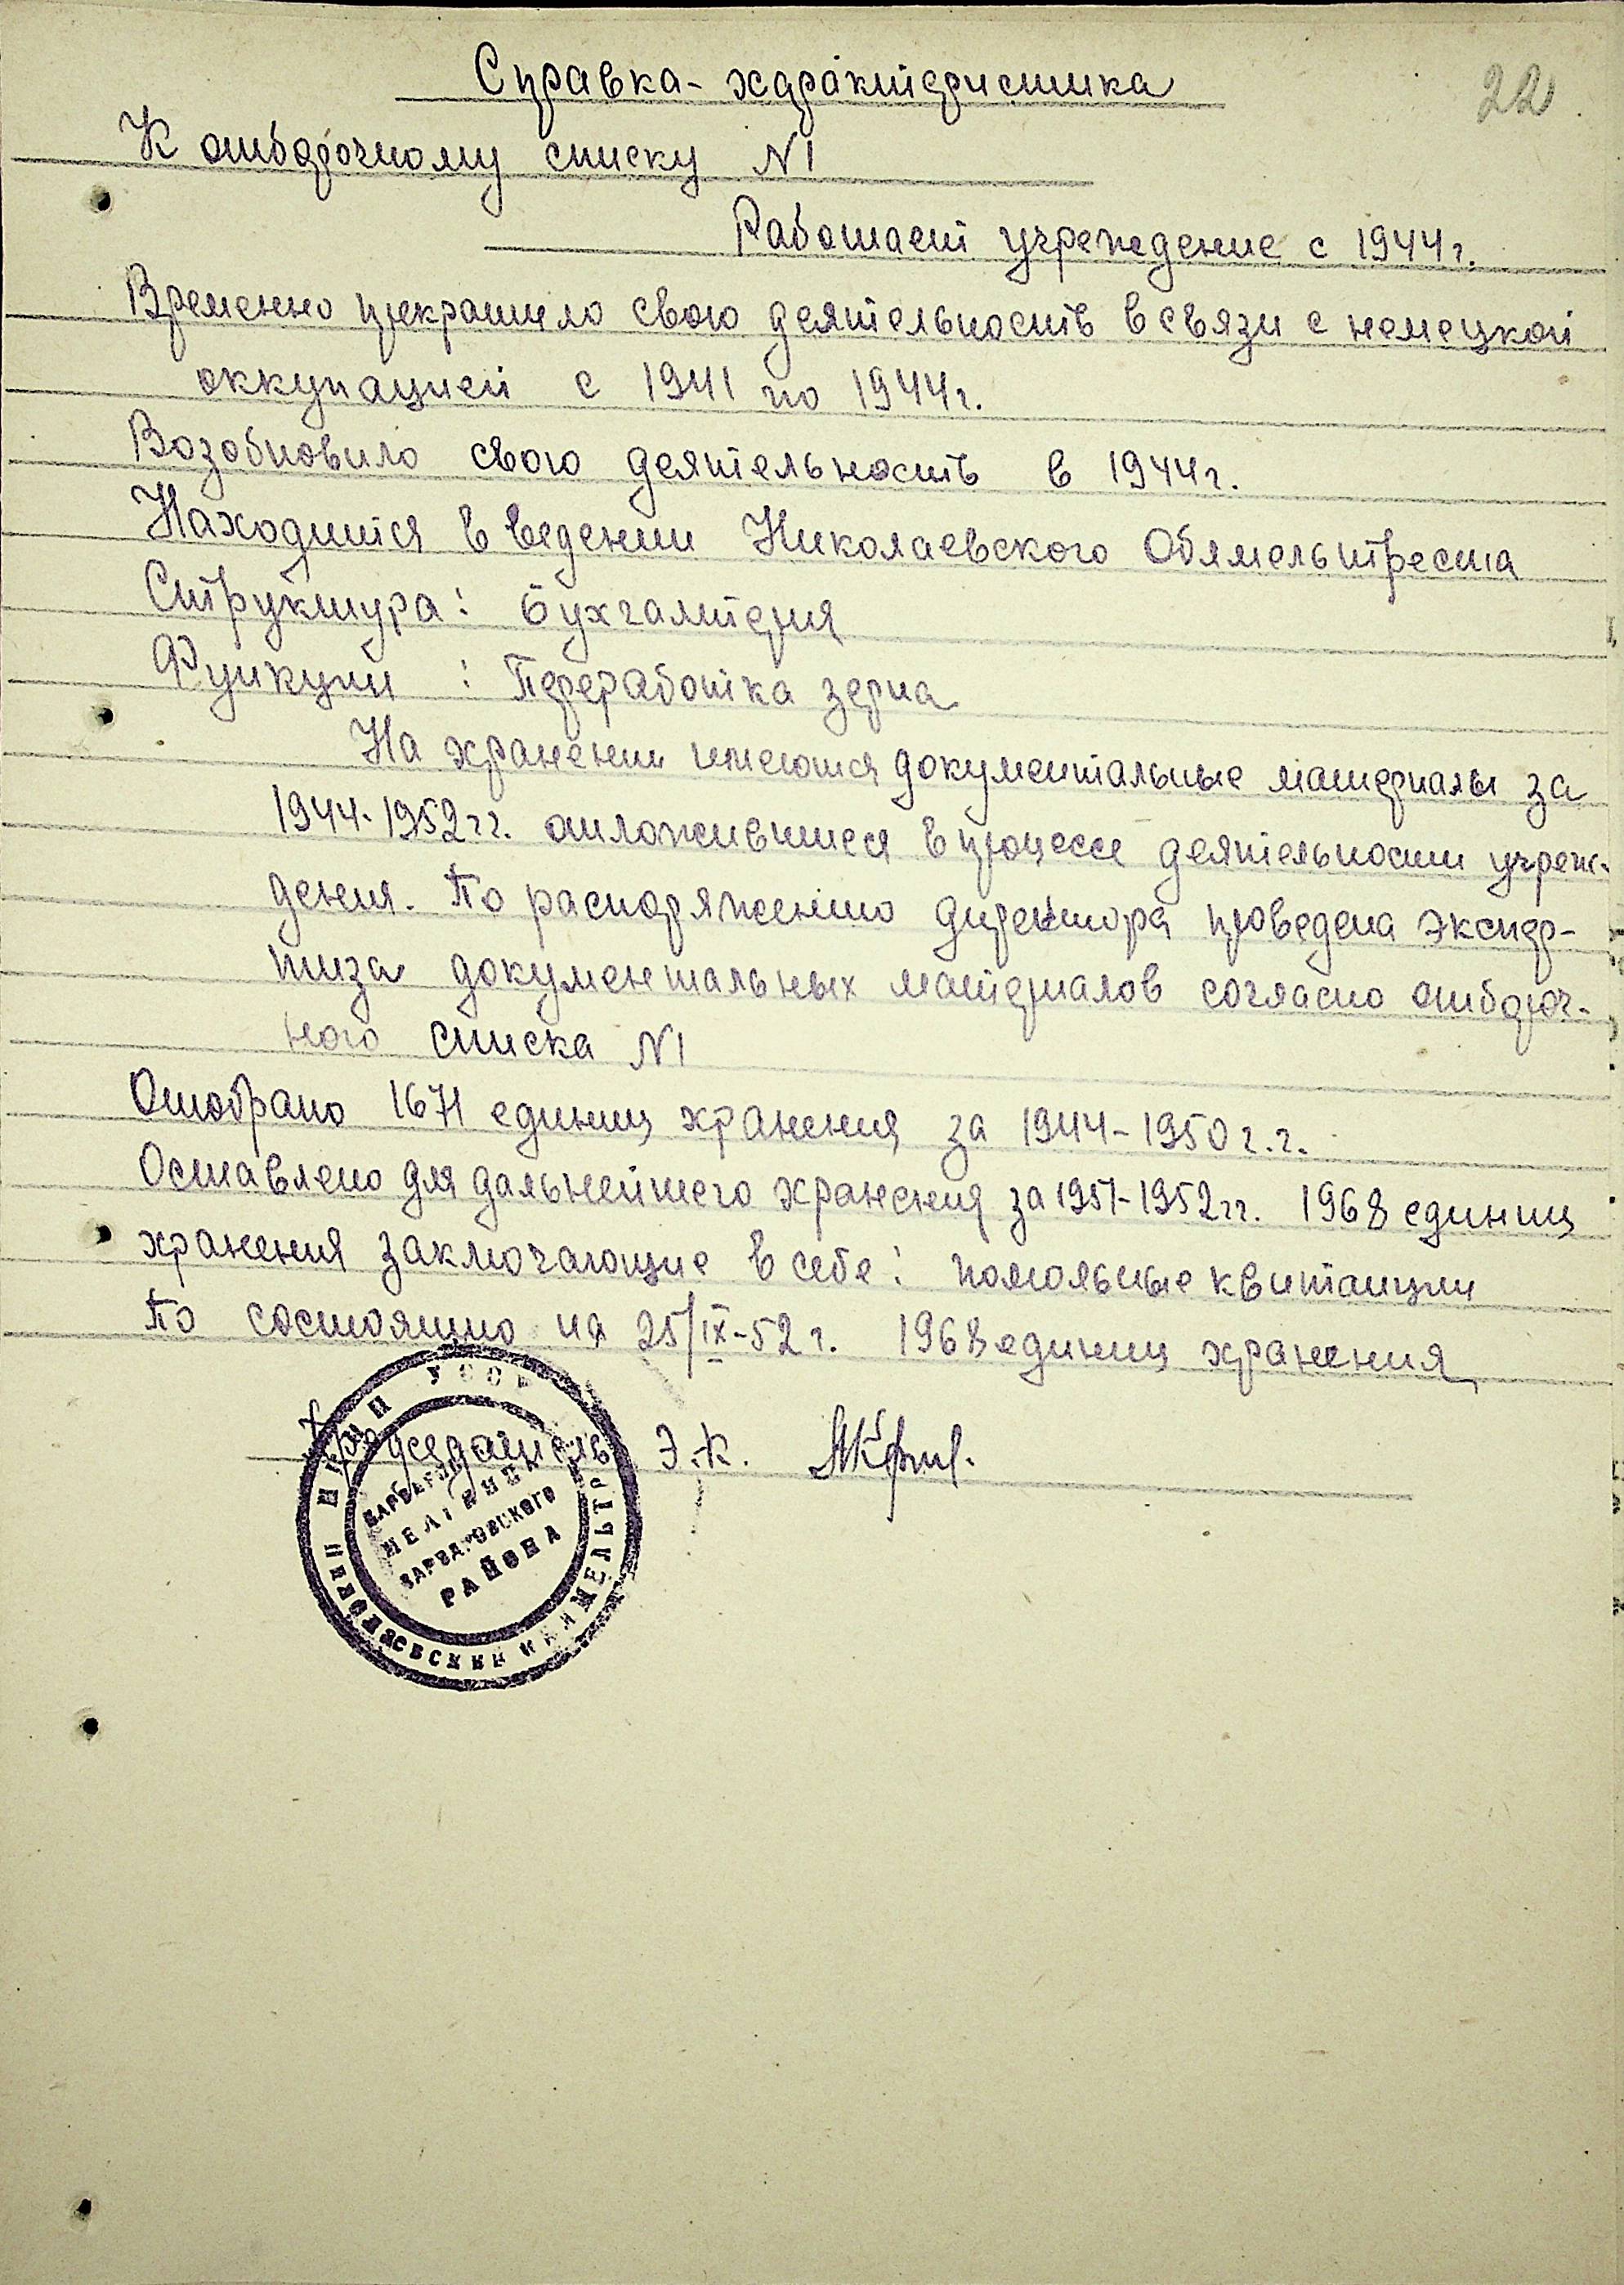 22
Справка-характеристика
К отборочному списку N1
Работает учреждение с 1944г.
Временно прекратило свою деятельность в связи с немецкой
оккупацией с 1941 по 1944г.
Возобновило свою деятельность в 1944г.
Находится в ведении Николаевского Облмельтреста
Структура: бухгалтерия
Функции : Переработка зерна
На хранении имеются документальные материалы за
1944-1952гг. отложившиеся в процессе деятельности учреж-
дения. По распоряжению директора проведена экспер-
тиза документальных материалов согласно отбороч-
ного списка N1
Отобрано 1671 единиц хранения за 1944-1950г.г.
Оставлено для дальнейшего хранения за 1951-1952гг. 1968 единиц
хранения заключающие в себе: помольные квитанции
По состоянию на 25/IX-52г. 1968 единиц хранения
Председатель Э.К.
УССР
ВАРВАРОВСКОГО
РАЙОНА